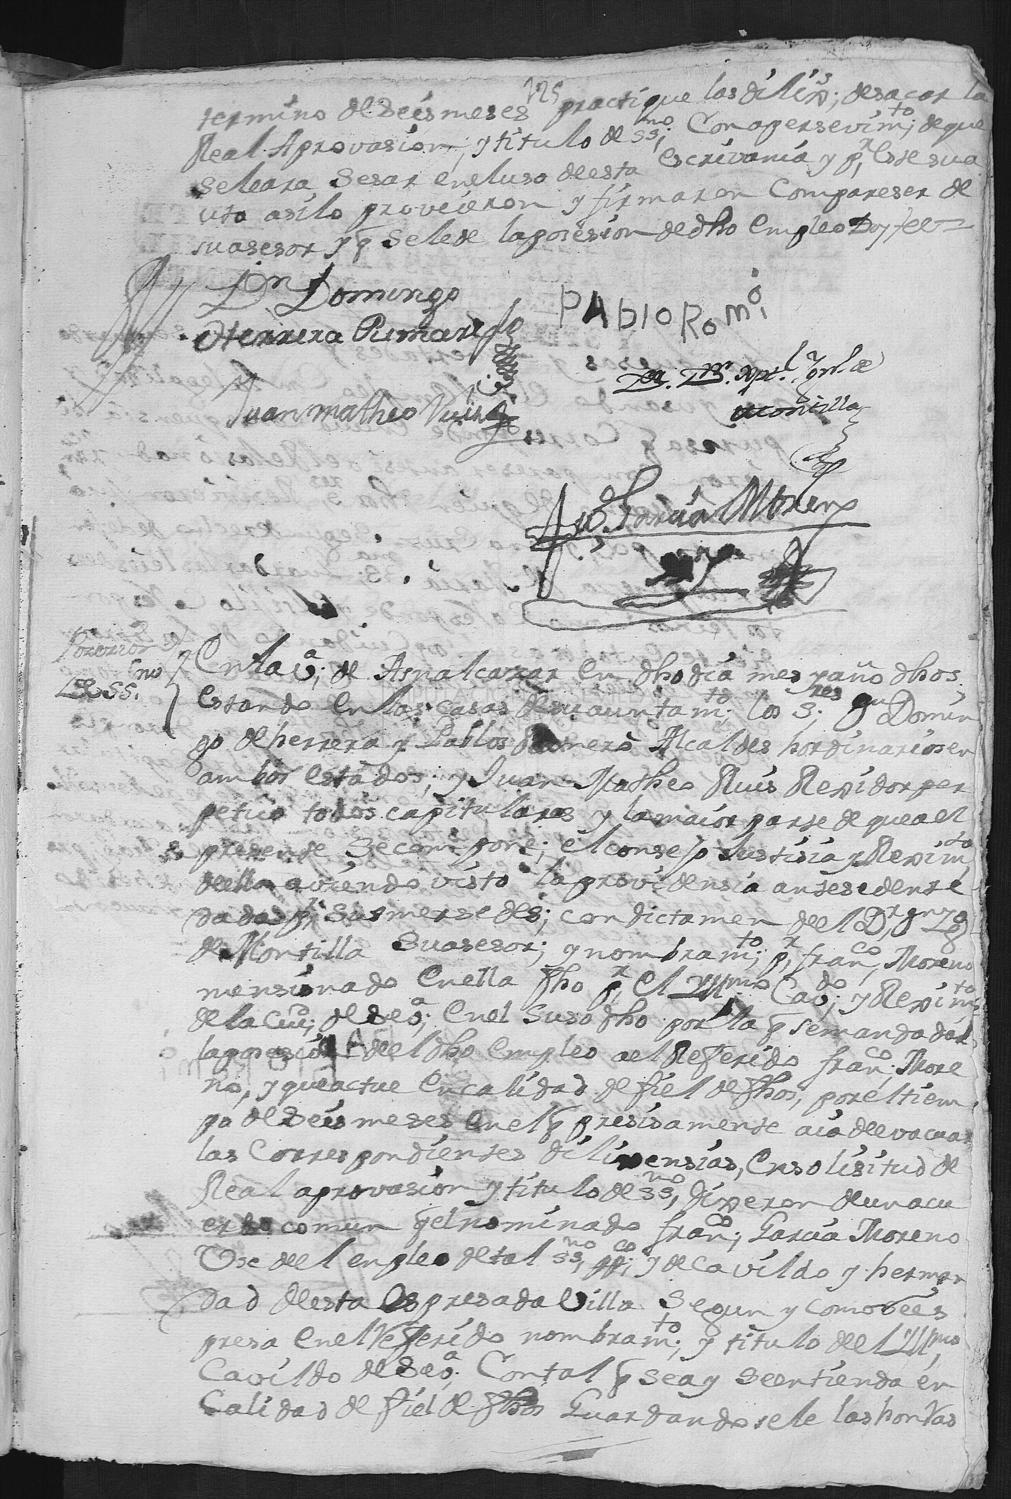 125
termino de seis meses practique las dilixs; de sacar la
Real Aprovasion, y titulo de ssno; Con apersevimto; de que
seleara Sesar en el uso de esta escrivania y pr, Este su a
uto asi lo proveieron y firmaron Compareser de
su asesor y q se le de la posesion de dho Empleo Doy fee=
Dn Domingo
Herrera Pumarejo
PABlo Romo
Juan matheo Ruis
Montilla
Franco Garcia Moreno
Posesion
Del SSno,
En la va; de Asnalcazar en dho dia mes y año dhos;
estando en las casas de su auntamto; los Sres; Dn Domin
go de herrera y Pablos Romero Alcaldes hordinarios en
ambos estados; y Juan Matheo Ruis Rexidor per
petuo todos capitulares y la maior parte de que a el
presente se compone; el consejo Justisia y Reximto,
de ella aviendo visto la providensia antesedente
dada pr, sus mersedes; con dictamen de el Dr Dn
de Montilla su asesor; y nombramto; pr, franco, Moreno
mensionado en ella fho pr, el Yllmo Cavdo; y Reximto
de la ciud; de Seva; en el susodho por la q se manda dar
la posesion de el dho empleo a el Referido franco; More
no, y que actue en calidad de fiel de fhos, por el tiem
po de seis meses en el q presisamente aia de evacuar
las Correspondientes dilixensias, en solisitud de
Real aprovasion y titulo de ssno, dixeron de un acu
erdo comun q el nominado franco; Garcia Moreno
Use de el empleo de tal ssno, ppco; y de Cavildo y herman
dad de esta Espresada Villa Segun y como se es
presa en el Referido nombramto; y titulo de el Yllmo
Cavildo de Seva; Con tal q sea y se entienda en
Calidad de fiel de fhos Guardandosele las honrras